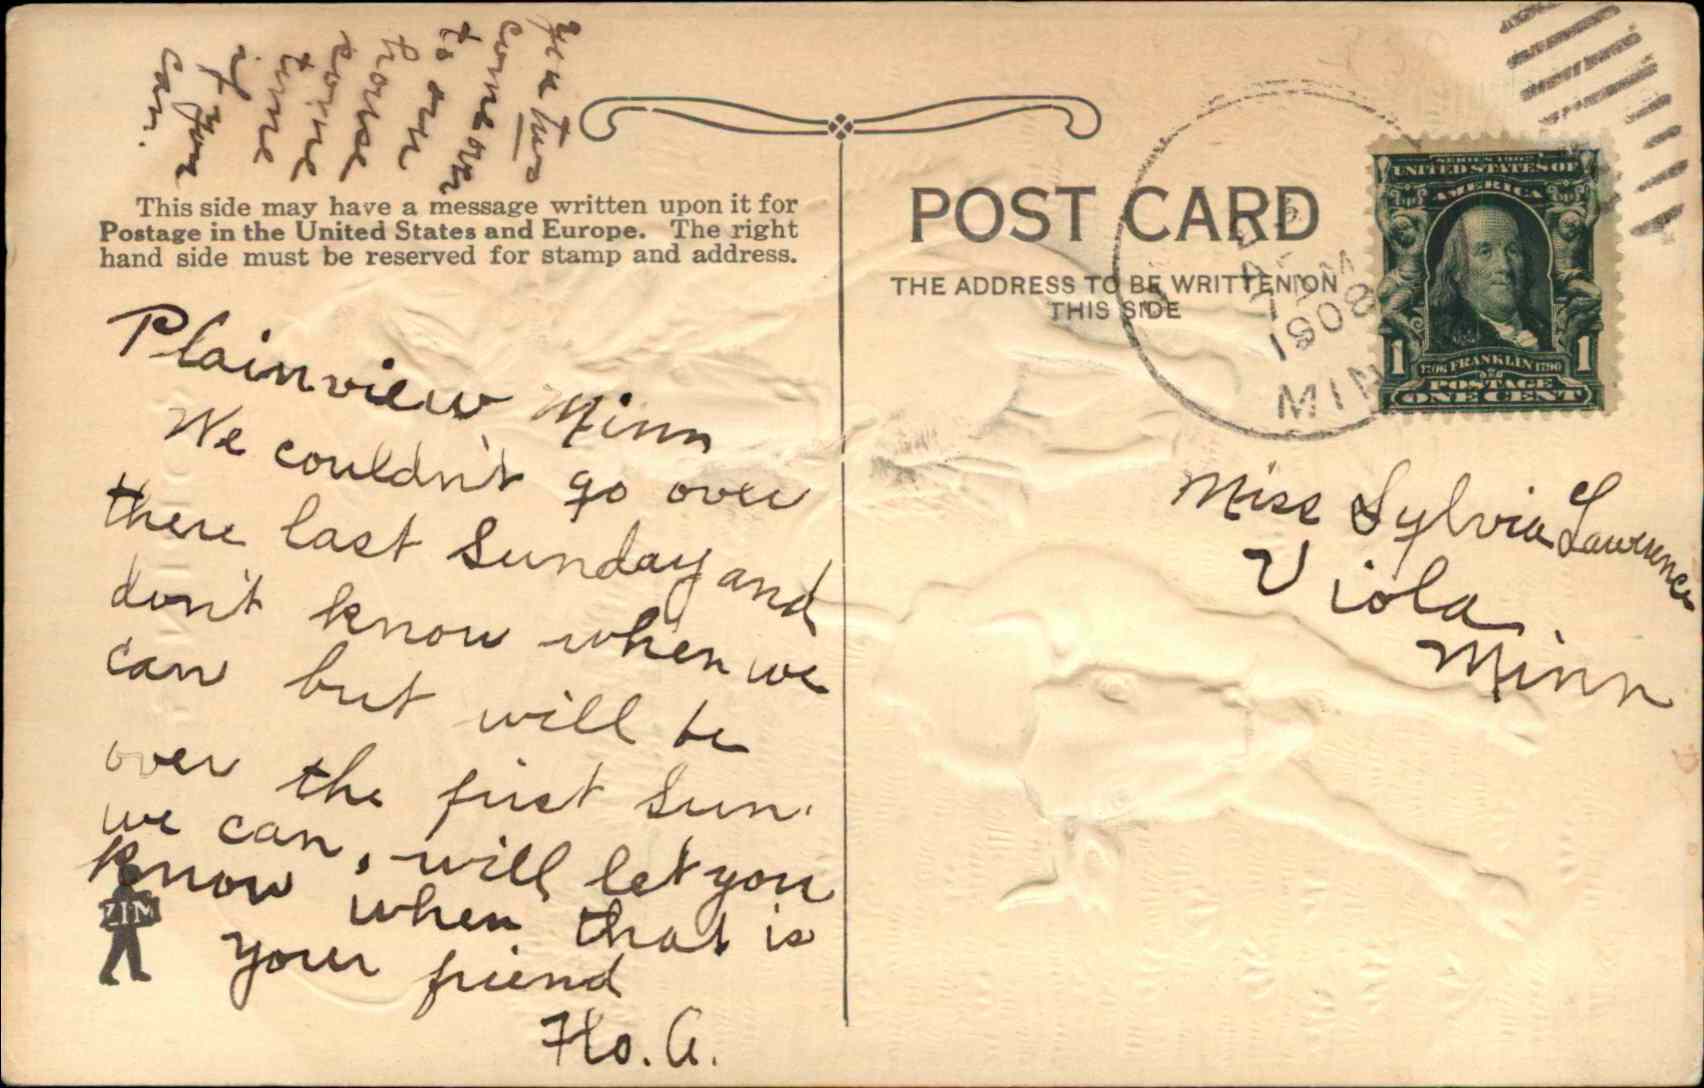 you two
come over
to our
house
some
time
if
you
can.
This side may have a message written upon it for
Postage in the United States and Europe. The right
hand side must be reserved for stamp and address.
Plainview Minn
We couldn't go over
there last Sunday and
don't know when we
can but will be
over the first Sun.
we can, will let you
know when that is
your friend
Flo. A.
ZIM
POST CARD
THE ADDRESS TO BE WRITTEN ON
THIS SIDE
1908
MIN
SERIES 1902
UNITED STATES OF
AMERICA
1 1
1706 FRANKLIN 1790
POSTAGE
ONE CENT
Miss Sylvia Lawrence
Viola
Minn